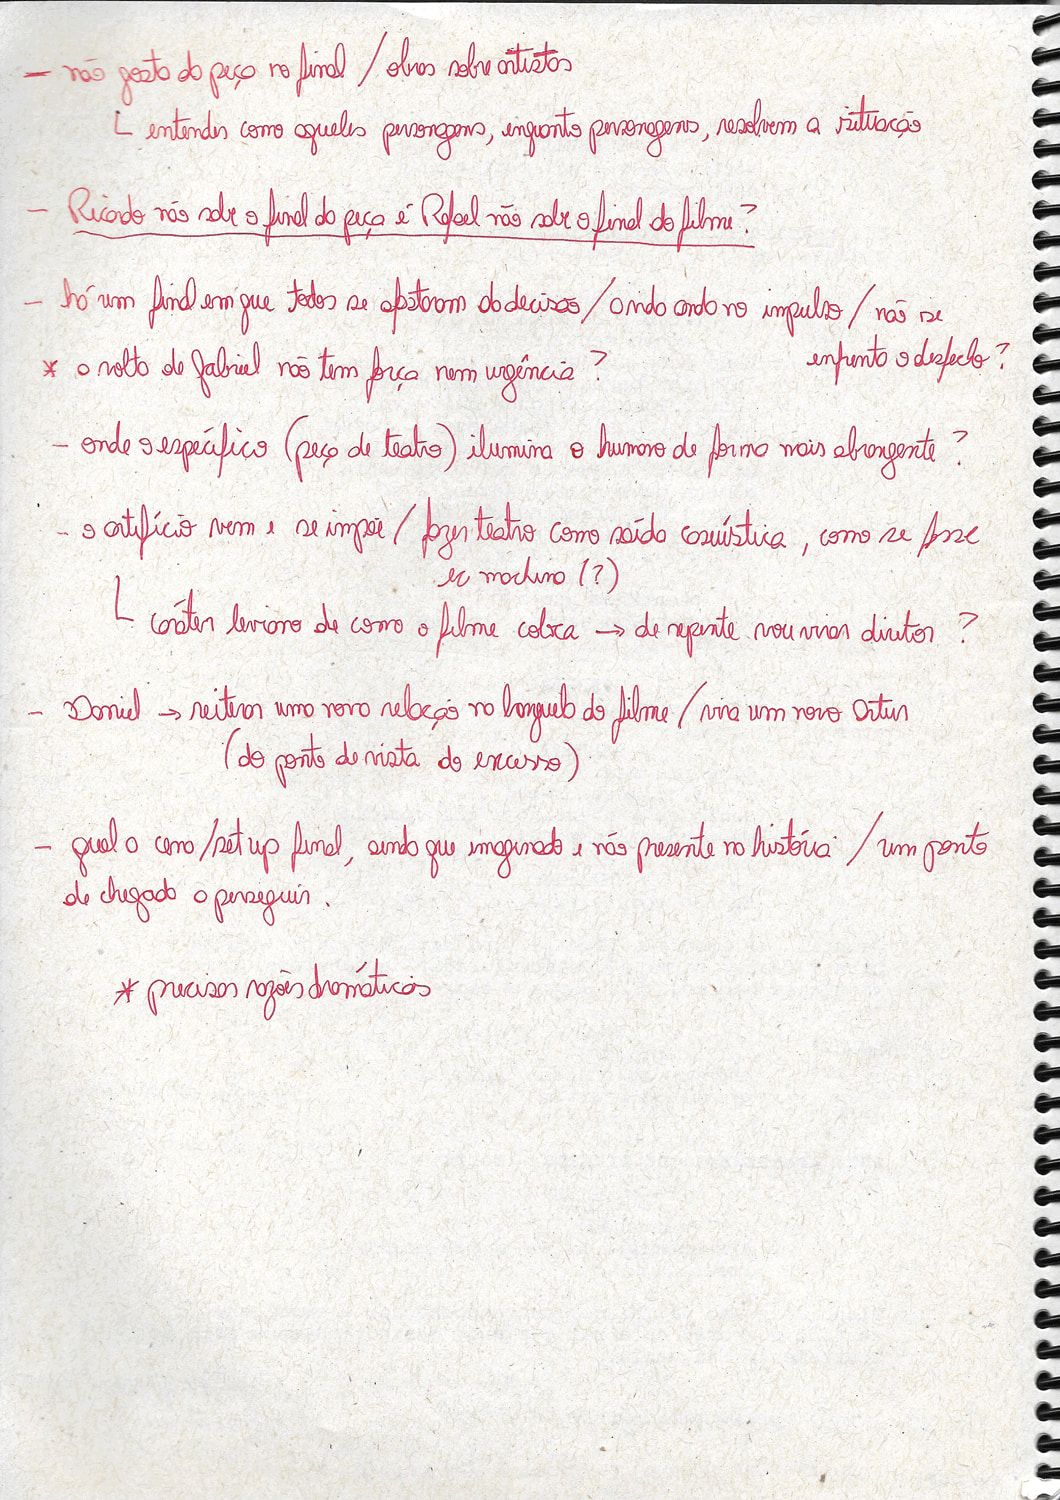 - não gosto da peça no final / obras sobre artistas
└ entender como aqueles personagens, enquanto personagens, resolvem a situação
- Ricardo não sabe o final da peça é Rafael não sabe o final do filme?
- há um final em que todos se afastaram da decisão / ainda ando no impulso / não se
enfrenta o desfecho?
* a volta de Gabriel não tem força nem urgência?
- onde o específico (peça de teatro) ilumina o humano de forma mais abrangente?
- o artifício vem e se impõe / fazer teatro como saída casuística, como se fosse
ex machina (?)
└ caráter leviano de como o filme coloca → de repente vou virar diretor?
- Daniel → reiterar uma nova relação no longuelo do filme / vira um novo Artur
(do ponto de vista do excesso)
- qual a cena / set up final, ainda que imaginado e não presente na história / um ponto
de chegada a perseguir.
* precisar razões dramáticas